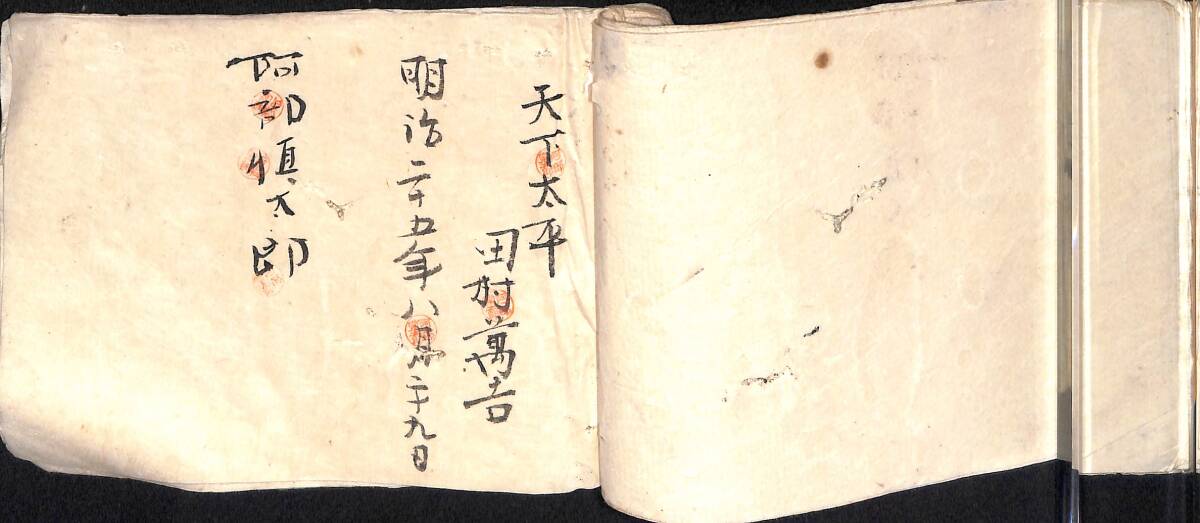 天下太平
田村萬吉
明治二十五年八月二十九日
阿部慎太郎